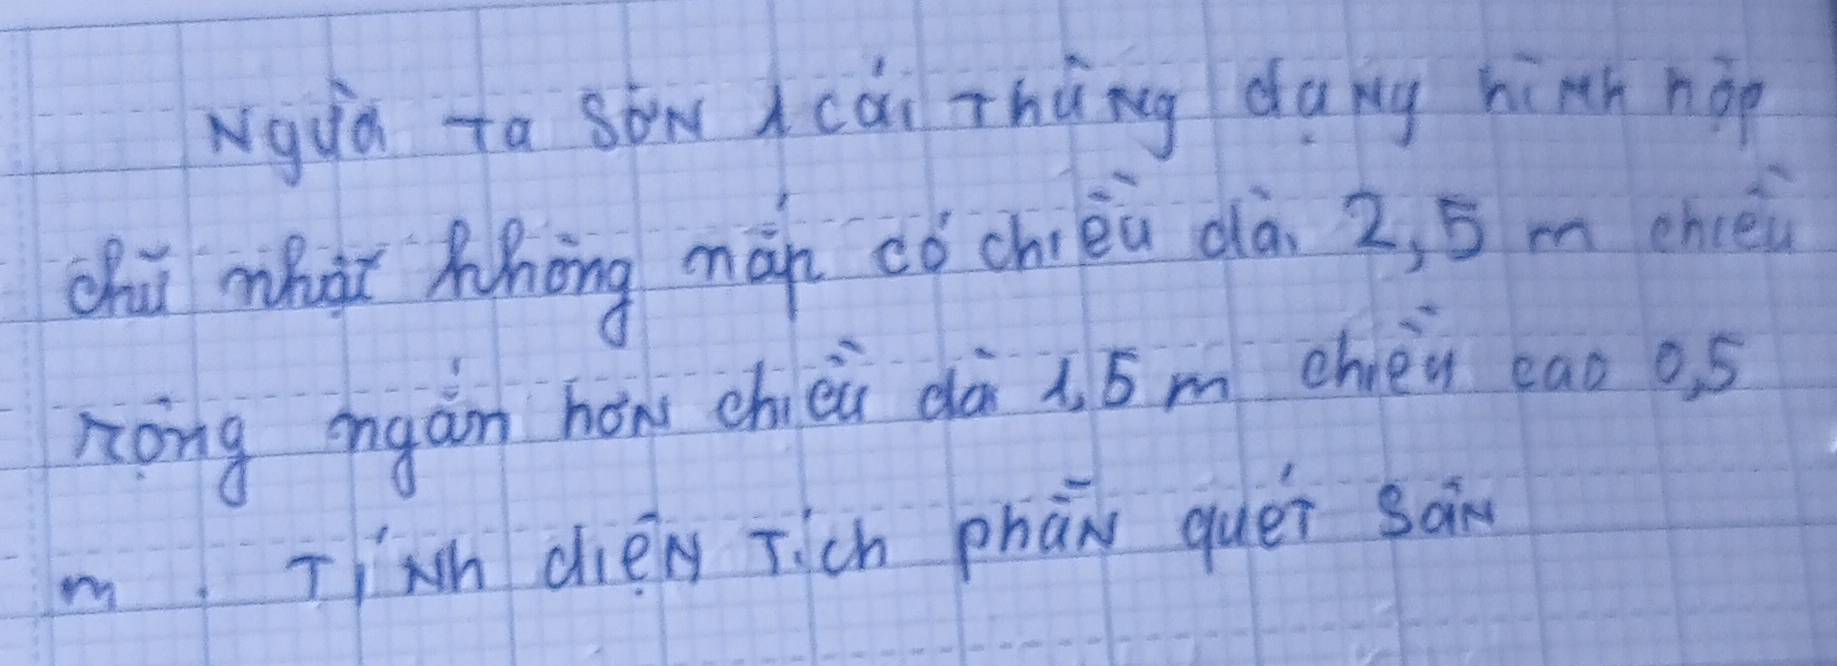 Người ta sơn 1 cái thùng dạng hình hộp
chữ nhật không nắp có chiều dài 2,5 m chiều
rộng ngắn hơn chiều dài 1,5 m chiều cao 0,5
m. Tính diện tích phần quét sơn